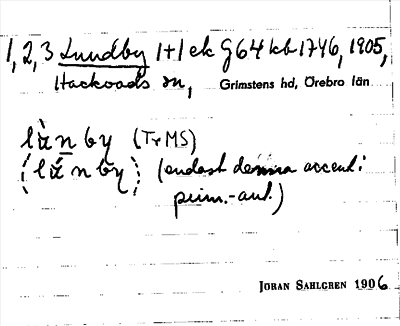 1, 2, 3 Lundby 1+1 ek G64 kb 1746, 1905,
Hackvads sn, Grimstens hd, Örebro län
lùnby (T+MS)
(endast denna accent i
prim.-uppt.)
JÖRAN SAHLGREN 1906